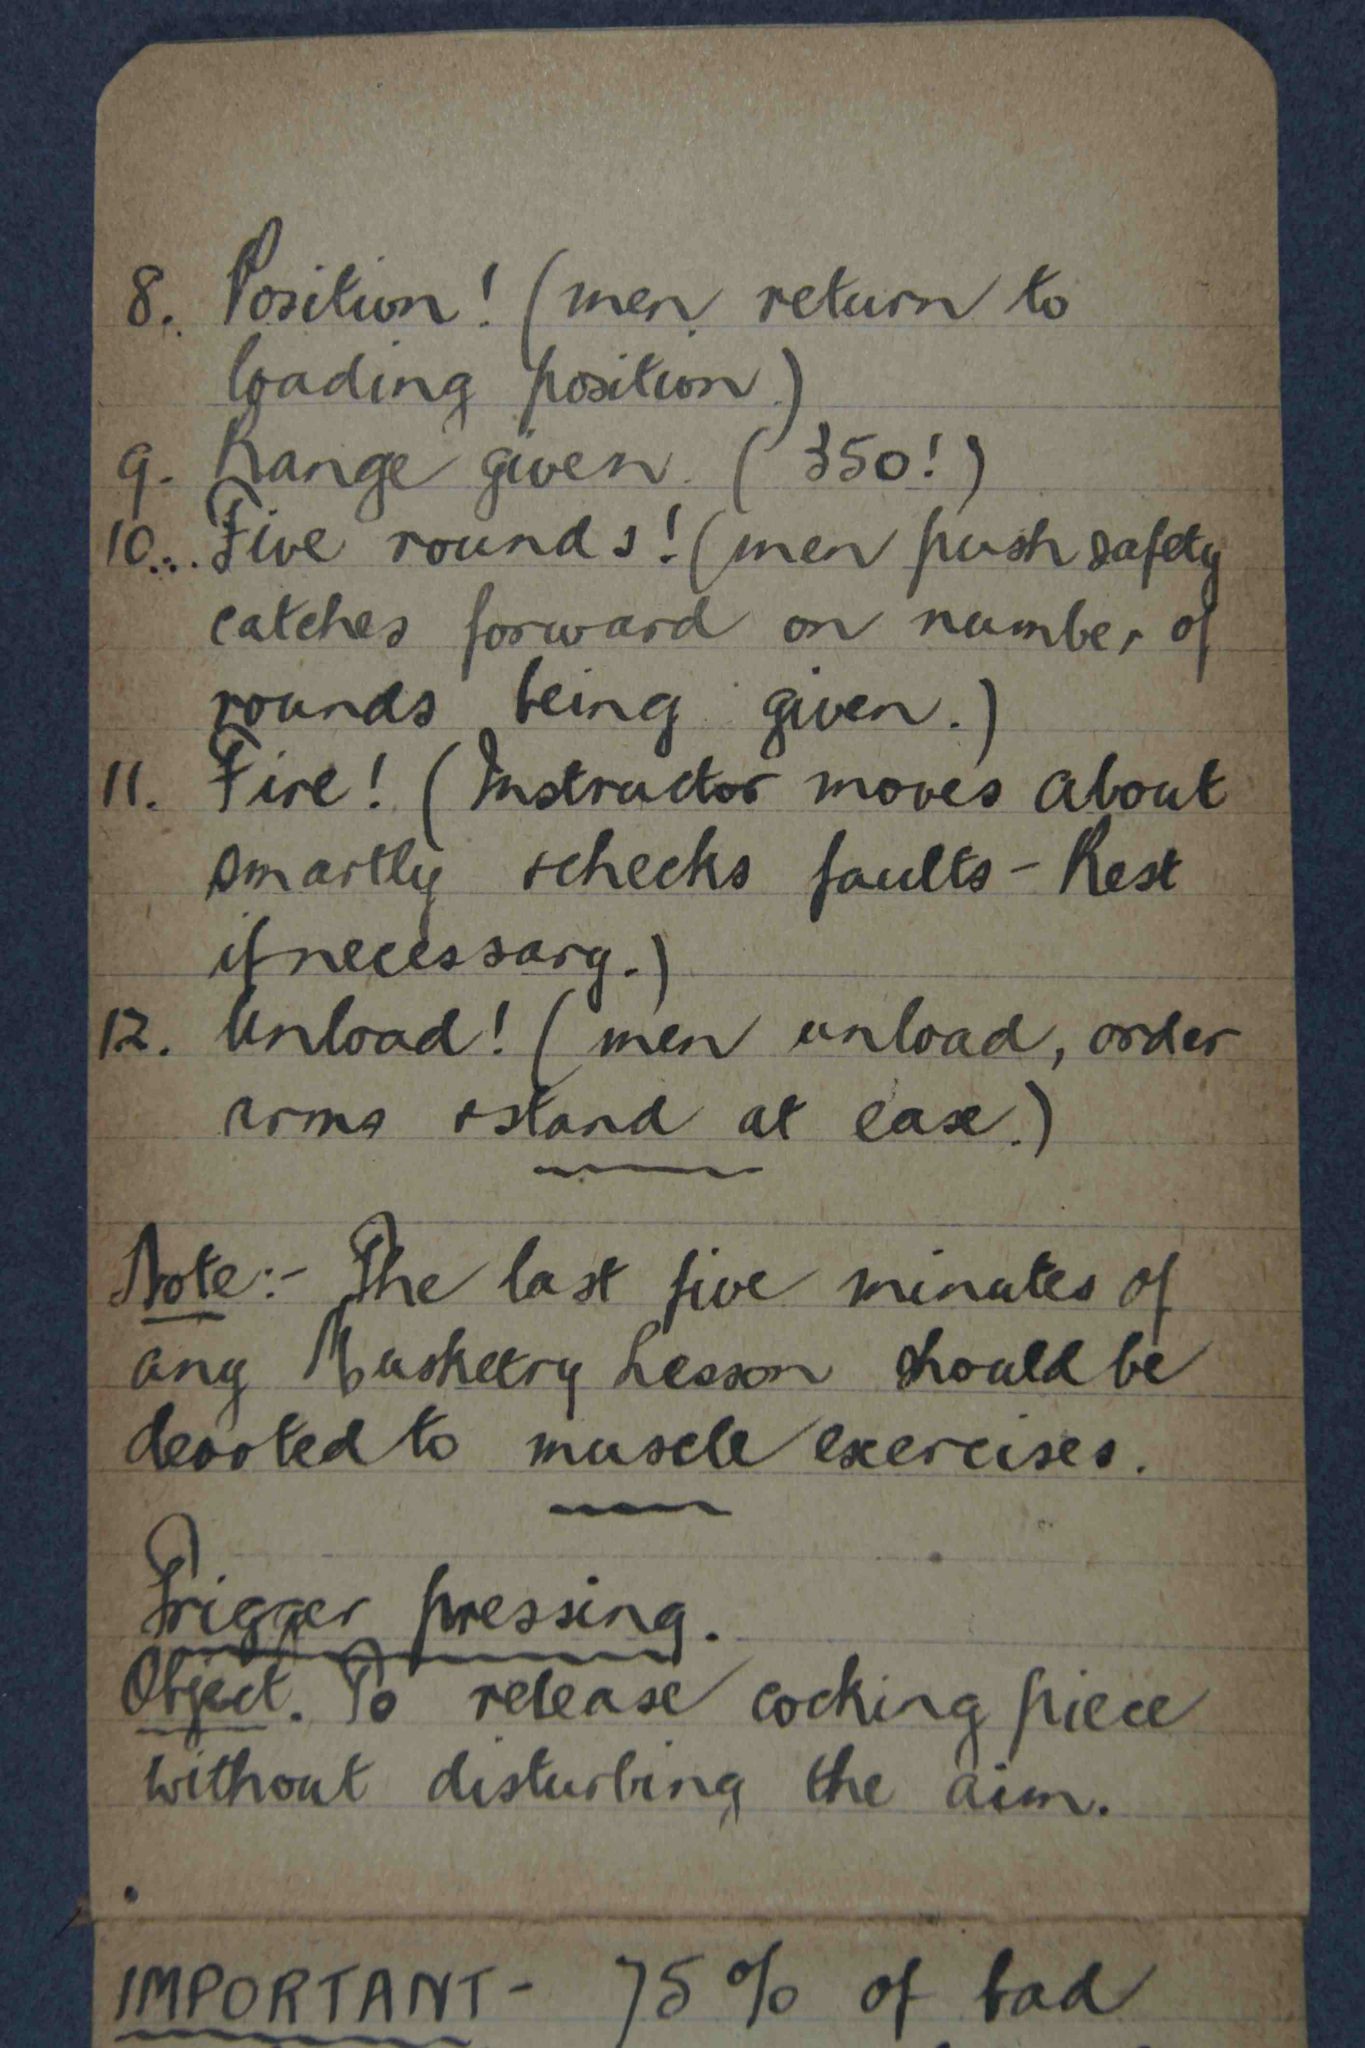 8. Position! (men return to
loading position.)
9. Range given. (350!)
10... Five rounds! (men push safety
catches forward on number of
rounds being given.)
11. Fire! (Instructor moves about
smartly & checks faults - Rest
if necessary.)
12. Unload! (men unload, order
arms & stand at ease.)
Note:- The last five minutes of
any Musketry Lesson should be
devoted to muscle exercises.
Trigger pressing.
Object. To release cocking piece
without disturbing the aim.
IMPORTANT - 75% of bad